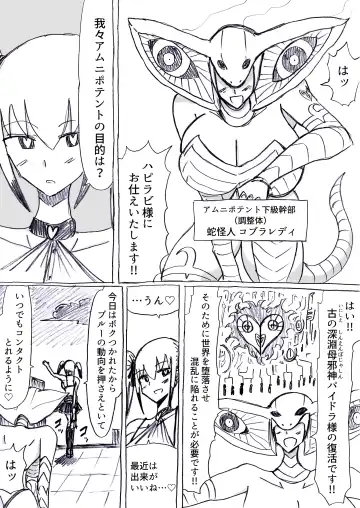 はッ
ハピラビ様に
お仕えいたします!!
アムニポテント下級幹部
(調整体)
蛇怪人 コブラレディ
我々アムニポテントの目的は?
はい!!
古の深淵母邪神パイドラ様の復活です!!
いにしえ しんえんぼじゃしん
そのために世界を堕落させ
混乱に陥れることが必要です!!
…うん♡
最近は
出来が
いいね…♡
今日はボクつかれたから
ブルーの動向を押さえといて
いつでもコンタクト
とれるように♡
はッ